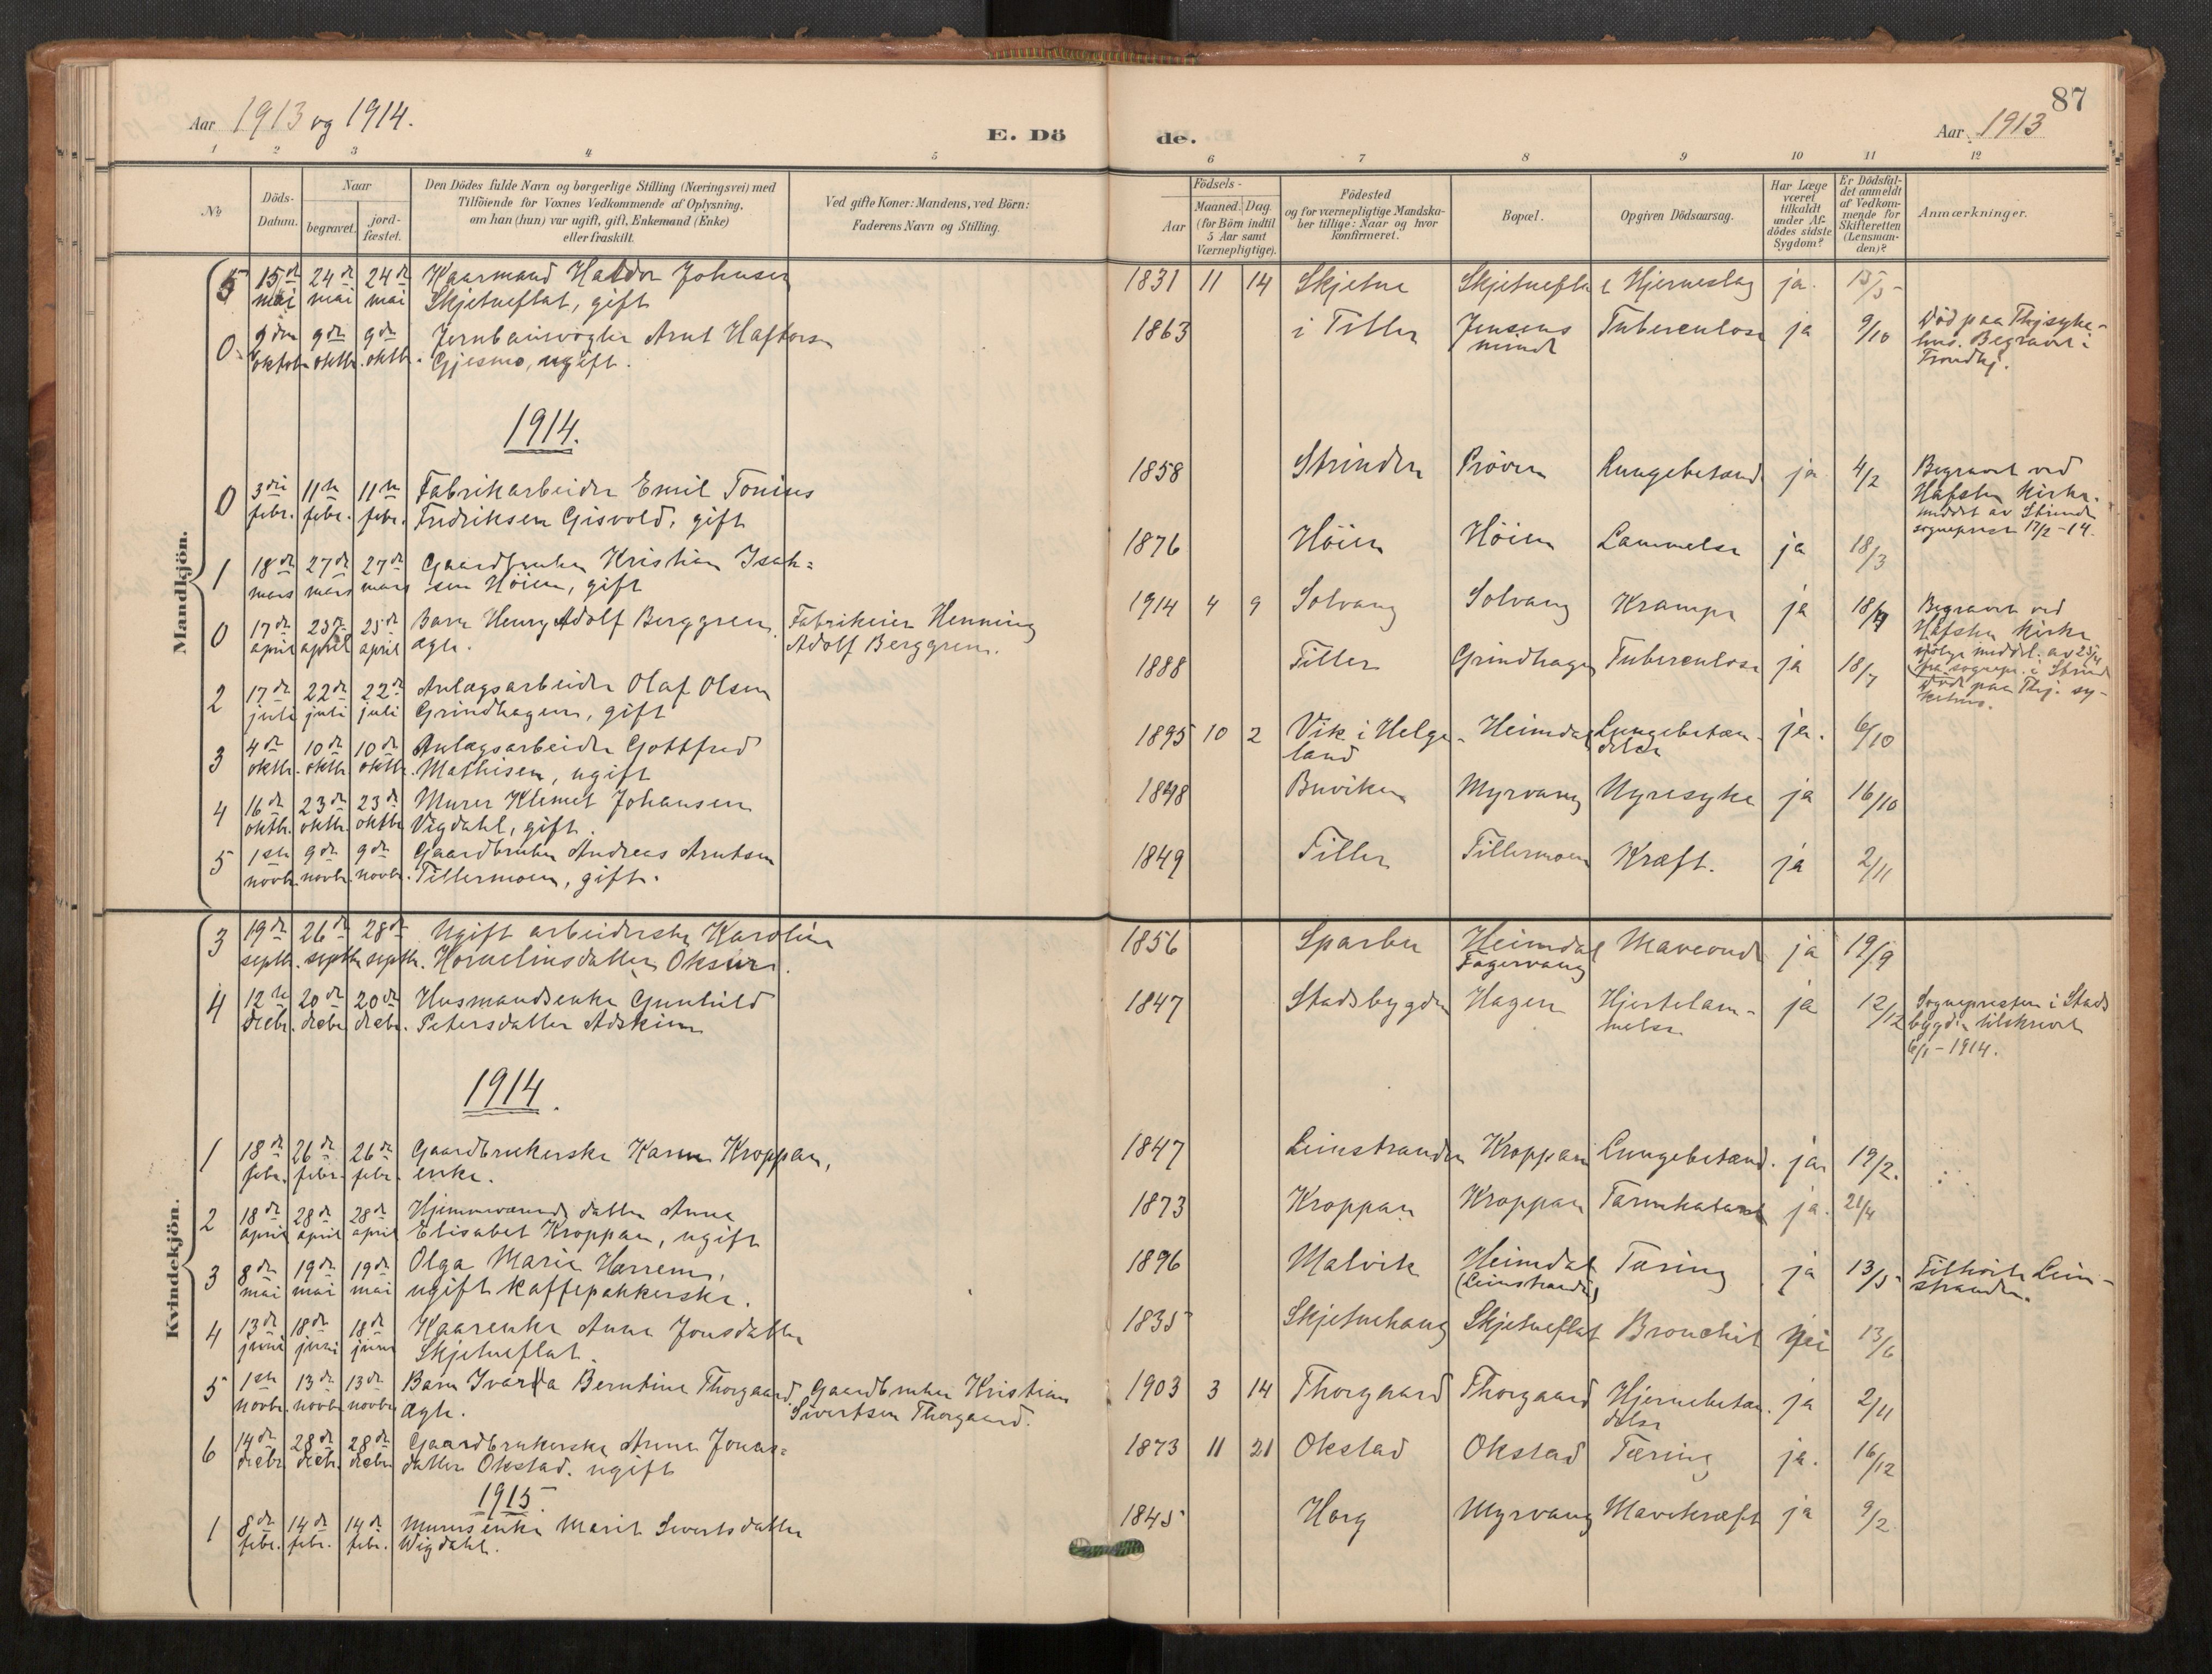 Aar 1913 og 1914.
E. Dö
de.
87
Aar 1913
1 2 3 4 5 6 7 8 9 10 11 12
№
Döds-
Datum.
Naar
begravet.
jord-
fæstet.
Den Dödes fulde Navn og borgerlige Stilling (Næringsvei) med
Tilföiende for Voxnes Vedkommende af Oplysning,
om han (hun) var ugift, gift, Enkemand (Enke)
eller fraskilt.
Ved gifte Koner: Mandens, ved Börn:
Faderens Navn og Stilling.
Födsels-
Aar
Maaned. Dag.
(for Börn indtil
5 Aar samt
Værnepligtige).
Födested
og for værnepligtige Mandska-
ber tillige: Naar og hvor
konfirmeret.
Bopæl.
Opgiven Dödsaarsag.
Har Læge
været
tilkaldt
under Af-
dödes sidste
Sygdom?
Er Dödsfal-
det anmeldt
af Vedkom-
mende for
Skifteretten
(Lensman-
den)?
Anmærkninger.
Mandkjön.
5 15de 24de 24de Kaarmand Haldor Johnsen 1831 11 14 Skjetne Skjetnefla t Hjerneslag ja 15/5
mai mai mai Skjetneflat, gift
0 9den 9de 9de Jernbanevogter Arnt Haftorsn 1863 i Tiller Jensens Tuberculose ja 9/10 Död paa Thj syke-
oktobr oktbr. oktbr. Gjesmo, ugift. minde hus. Begravet i
Trondhj.
1914.
0 3die 11te 11te Fabrikarbeider Emil Tonius 1858 Strinden Pröven Lungebetænd ja 4/2 Begravet ved
febr. febr. febr. Fredriksen Gisvold, gift Hafsten Kirke.
meddelt av Strinde
sogneprest 17/2-14.
1 18de 27de 27de Gaardbruker Kristian Isak= 1876 Höien Höien Lammelse ja 18/3
mars mars mars sen Höien, gift
0 17de 23de 25de Barn Henry Adolf Berggren. Fabrikeier Henning 1914 4 9 Solvang Solvang Krampe ja 18/4 Begravet ved
april april april ægte. Adolf Berggren. Hafsten Kirke
ifölge meddel. av 25/4
fra sognepr. i Strind
2 17de 22de 22de Anlægsarbeider Olaf Olsen 1888 Tiller Grindhagen Tuberculose ja 18/7 Död paa Thj. sy-
juli juli juli Grindhagen, gift kehus.
3 4de 10de 10de Anlægsarbeider Gottfred 1895 10 2 Vik i Helge- Heimdal Lungebetæn- ja. 6/10
oktbr. oktbr. oktbr. Mathisen, ugift land delse
4 16de 23de 23de Murer Klemet Johansen 1848 Buviken Myrvang Nyresyke ja 16/10
oktbr. oktbr. oktbr Vigdahl, gift.
5 1ste 9de 9de Gaardbruker Andreas Arntsen 1849 Tiller Tillermoen Kræft. ja 2/11
novbr. novbr. novbr. Tillermoen, gift.
Kvindekjön.
3 19de 26de 28de Ugift arbeiderske Karoline 1856 Sparbu Heimdal Mavevond ja 19/9
septbr. septbr. septbr. Kornelinsdatter Oksur. Fagervang
4 12te 20de 20de Husmandsenke Gunhild 1847 Stadsbygden Hagen Hjertelam- ja 12/12 Sognepresten i Stads
decbr. decbr. decbr. Petersdatter Adskim melse bygden tilskrevet
6/1-1914.
1914.
1 18de 26de 26de Gaardbrukerske Karen Kroppan, 1847 Leinstranden Kroppan Lungebetænd. ja 19/2.
febr. febr. febr. enke.
2 18de 28de 28de Hjemmeværende datter Anna 1873 Kroppan Kroppan Tarmkatarrh ja. 21/4
april april april Elisabet Kroppan, ugift
3 8de 19de 19de Olga Marie Harrem, 1896 Malvik Heimdal Tæring ja 13/5 Tilhörte Lein-
mai mai mai ugift kaffepakkerske. (Leinstranden) stranden.
4 13de 18de 18de Kaarenke Anne Jonsdatter 1835 Skjetnehaug Skjetneflat Bronchit Nei 13/6
juni juni juni Skjetneflat.
5 1ste 13de 13de Barn Ivarda Berntine Thorgaard. Gaardbruker Kristian 1903 3 14 Thorgaard Thorgaard Hjernebetæn. ja 2/11
novbr. novbr. novbr ægte. Sivertsen Thorgaard. delse
6 14de 28de 28de Gaardbrukerske Anna Jonas= 1873 11 21 Okstad Okstad Tæring ja. 16/12
decbr decbr. decbr datter Okstad. ugift
1915.
1 8de 14de 14de Murersenke Marit Sivertsdatter 1845 Horg Myrvang Mavekræft ja 9/2
febr. febr. febr. Wigdahl.